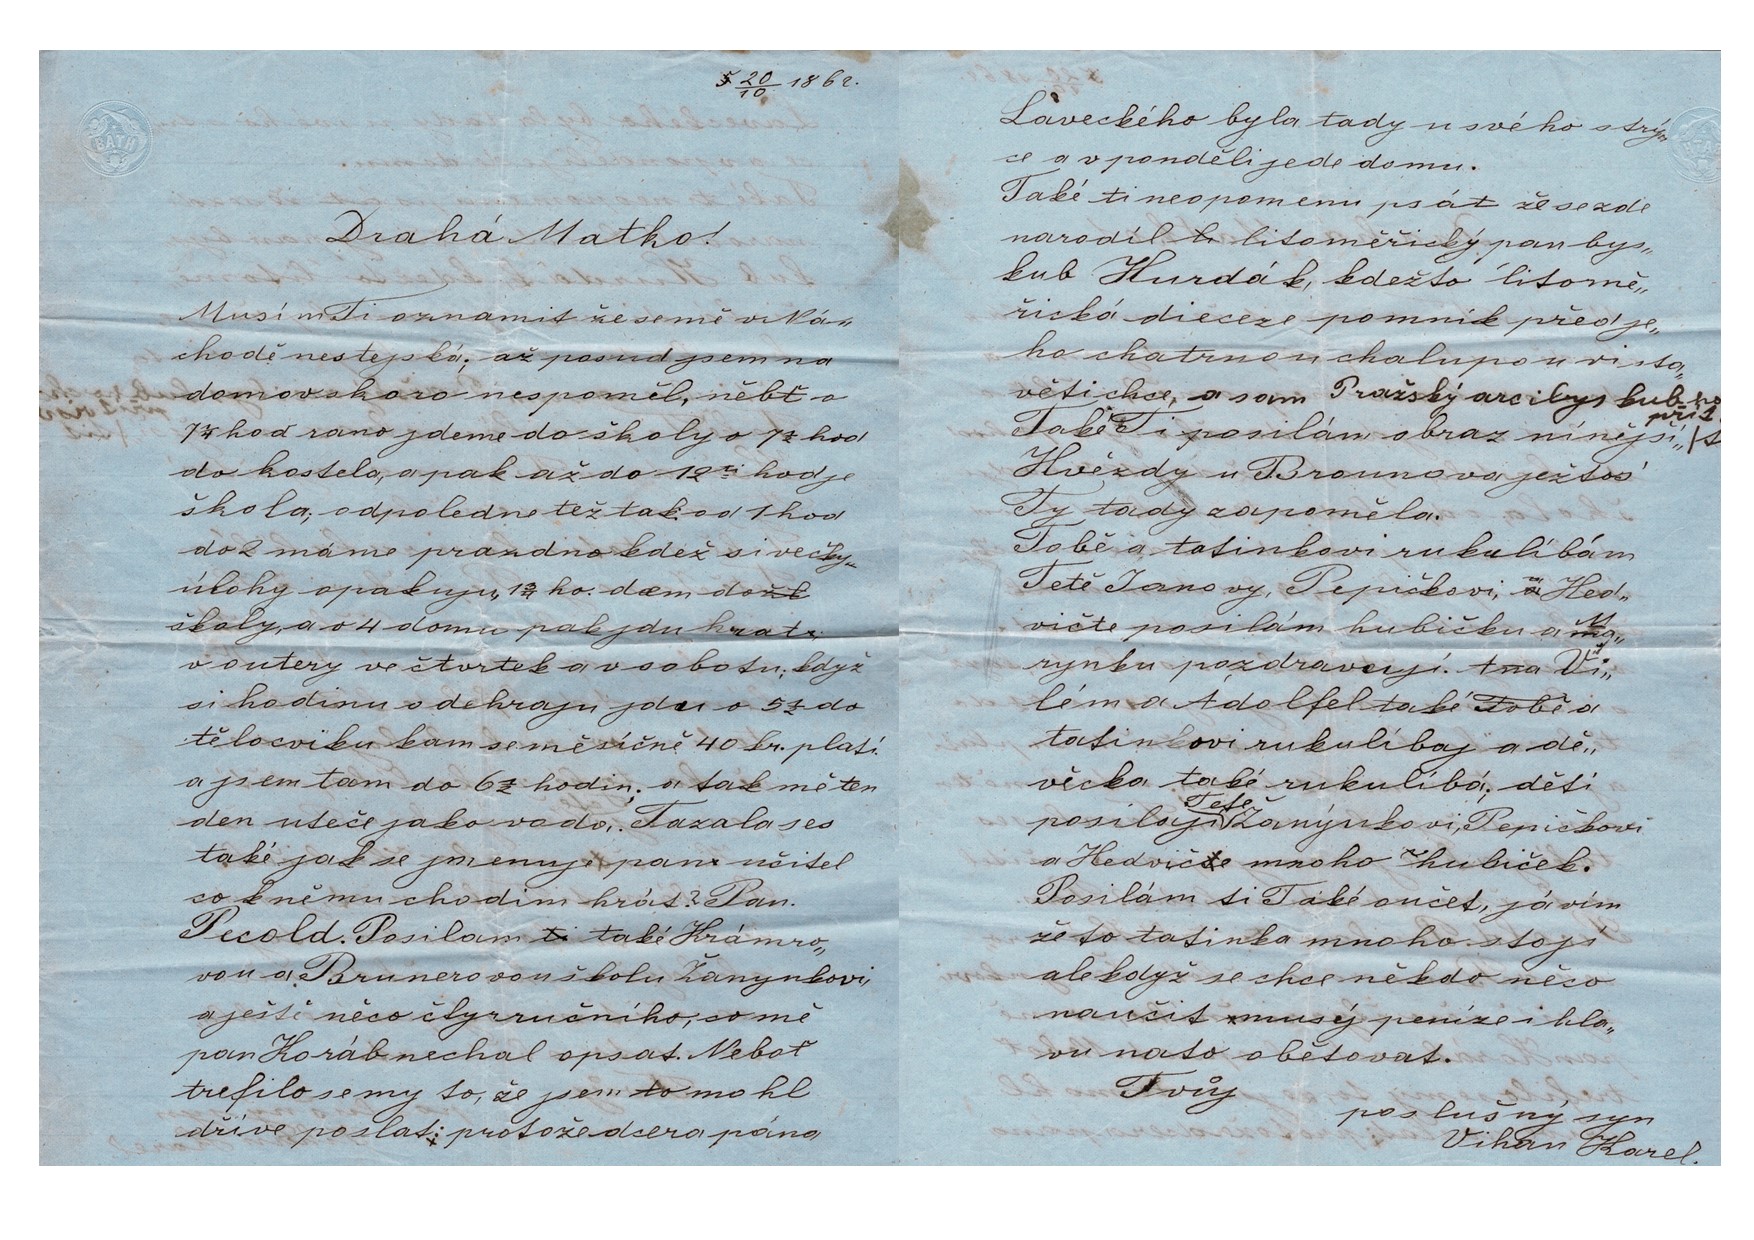 BATH
20/10 1862.
Drahá Matko!
Musím Ti oznamit že semě v Ná„
chodě nestejská; až posud jsem na
domov skoro nespoměl, něbť o
7¾ hod rano jdeme do školy o 7½ hod
do kostela, a pak až do 12ti hod je
škola; odpoledne též tak. od 1 hod
do 2 máme prazdno kdež si večky„
úlohy opakuju, 1¾ ho. dem do
školy, a o 4 domu pak jdu hrat
v outery ve čtvrtek a v sobotu; když
si hodinu odehraju jdu o 5½ do
tělocviku kam se měsíčně 40 kr. platí.
a jsem tam do 6½ hodin; a tak mě ten
den uteče jako voda. Tazala ses
také jak se jmenuje pan učitel
co k němu chodim hrát? Pan.
Pecold. Posilam ti také Krámro„
vou a Brunerovou školu Žanynkovi,
a ještě něco čtyrručního, co mě
pan Koráb nechal opsat. Neboť
trefilo se my to, že jsem to mohl
dříve poslat; protože dcera pána
Laveckého byla tady u svého strý„
ce a v ponděli jede domu.
Také ti neopomenu psát že se zde
narodil litoměřický pan bys„
kub Hurdák, kdežto litomě„
řická dieceze pomník před je„
ho chatrnou chalupou vista„
věti chce, a sam Pražský arcibyskub ho
při
Také Ti posilám obraz nínější„
Hvězdy u Brounova ježtos
Ty tady zapoměla.
Tobě a tatinkovi ruku líbám
Tetě Janovy, Pepičkovi, a Hed„
vičte posilám hubičku a Ma„
rynku pozdravuji. Vi„
lém a Adolfel také Tobě a
tatinkovi ruku líbaj a dě„
věcka také ruku líbá; děti
posilaji Tetě Žanýnkovi, Pepičkovi
a Hedvičte mnoho hubiček.
Posilám ti Také oučet, já vím
že to tatinka mnoho stojí
ale když se chce někdo něco
naučit musý peníze i hla„
vu na to obětovat.
Tvůj
poslušný syn
Vihan Karel.